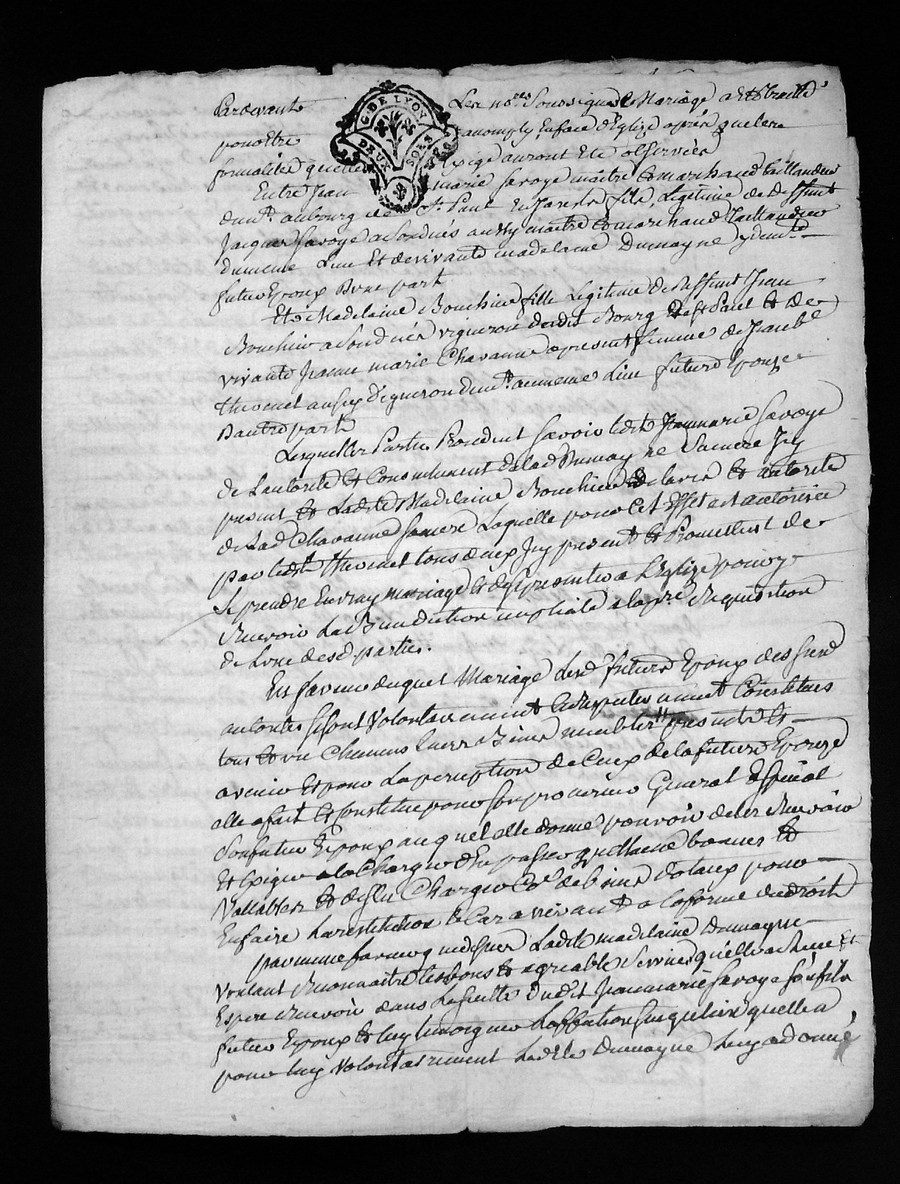 Pardevant Les no.res Soussignés Mariage a été traitté
G. DE LYON
DEUX SOLS
pour Etre accomply En face d'Eglize après que les
formalités quelle Exige auront Eté observées
Entre Jean marie Savoye maitre & marchand taillandier
demt. au bourg de St. Paul En Jarests fils Legitime de deffunt
Jacques Savoye a Son dués aussy maitre & marchand Taillandier
du meme Lieu Et de vivante madelaine Dumayne y demte.
futur Epoux D'une part
Et Madelaine Bouchin fille Legitime de deffunt Jean
Bouchin a Son dués vigneron dudit Bourg de St Paul & de
vivante Jeanne marie Chavanne a present femme de Jean bte.
thevenet aussy Vigneron demt. au meme Lieu future Epouze
D'autre part
Lesquelles Parties Procedant Savoir ledit Jean marie Savoye
de L'autorité & Consentement de lad Dumayne Sa mere Icy
present & Ladite Madelaine Bouchin de L'avis & autorité
de Lad Chavanne Sa mere Laquelle pour Cet Effet est autorisée
par ledit thevenet tous deux Icy present & Promettent de
Se prendre En vray mariage & de Se presenter a L'Eglize pour y
Recevoir La Benediction nuptiale a la pre. Requisition
de L'une desd parties.
En faveur duquel Mariage Lesd futurs Epoux des Susd
autorités Se sont Volontairement & Respectivement Constitués
tous & un Chacuns Leurs Biens meubles presents &
avenir Et pour La perception de Ceux de la future Epouze
elle a fait & Constitue pour Son procureur General & Special
Son futur Epoux auquel elle donne pouvoir de les Recevoir
Et Exiger a la Charge d'En passer quittance bonnes &
Vallables & de S'En Charger Sur Ses biens Dotaux pour
En faire La restitution le Cas arrivant a la forme du droit
par meme faveur que dessus Ladite madelaine Dumayne
Voulant Reconnaitre les bons & agreables Services qu'elle a Recu Et
Espere Recevoir dans La Suitte dudit Jean marie Savoye Son fils
futur Epoux & luy temoigner L'affection Singuliere quelle a
pour luy Volontairement Ladite Dumayne luy a donné